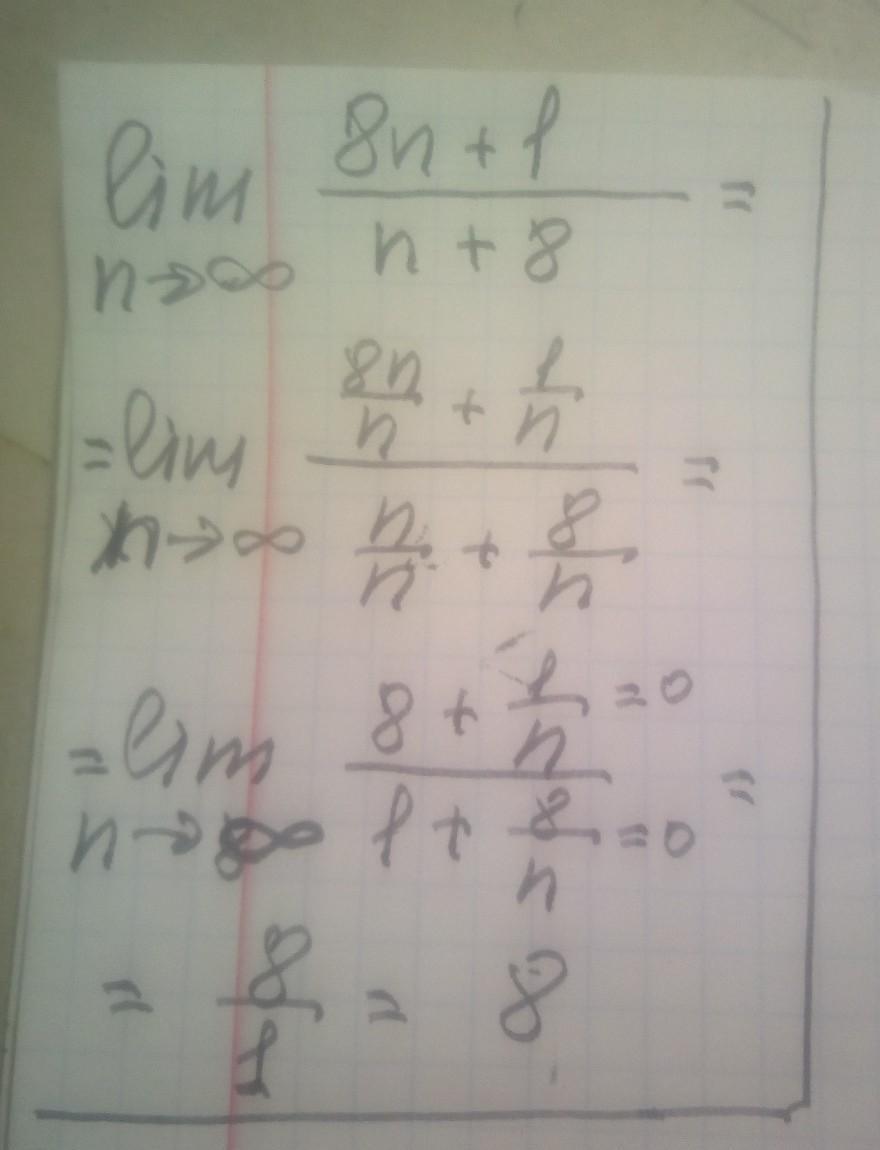 lim n→∞ (8n + 1)/(n + 8) =
= lim n→∞ (8n/n + 1/n)/(n/n + 8/n) =
= lim n→∞ (8 + 1/n = 0)/(1 + 8/n = 0) =
= 8/1 = 8